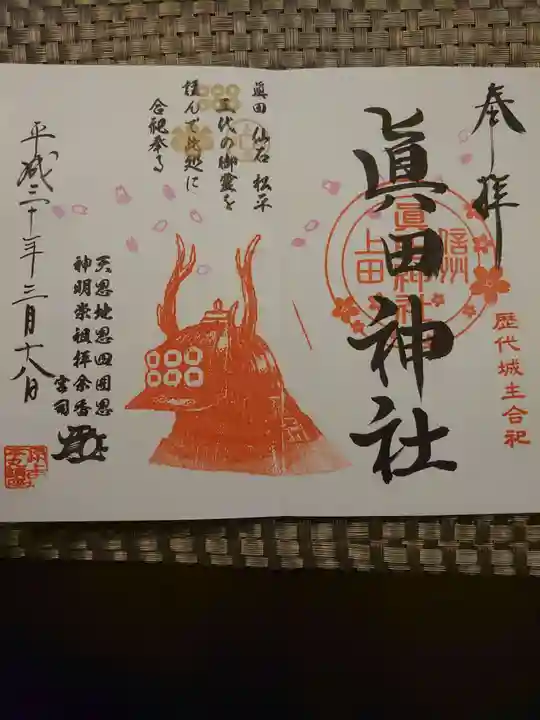 奉拝
歴代城主合祀
信州
眞田神社
上田
眞田神社
眞田 仙石 松平
三代の御霊を
謹んで此処に
合祀奉る
天恩地恩四囲恩
神明崇祖拝余香
宮司
平成三十年三月十八日